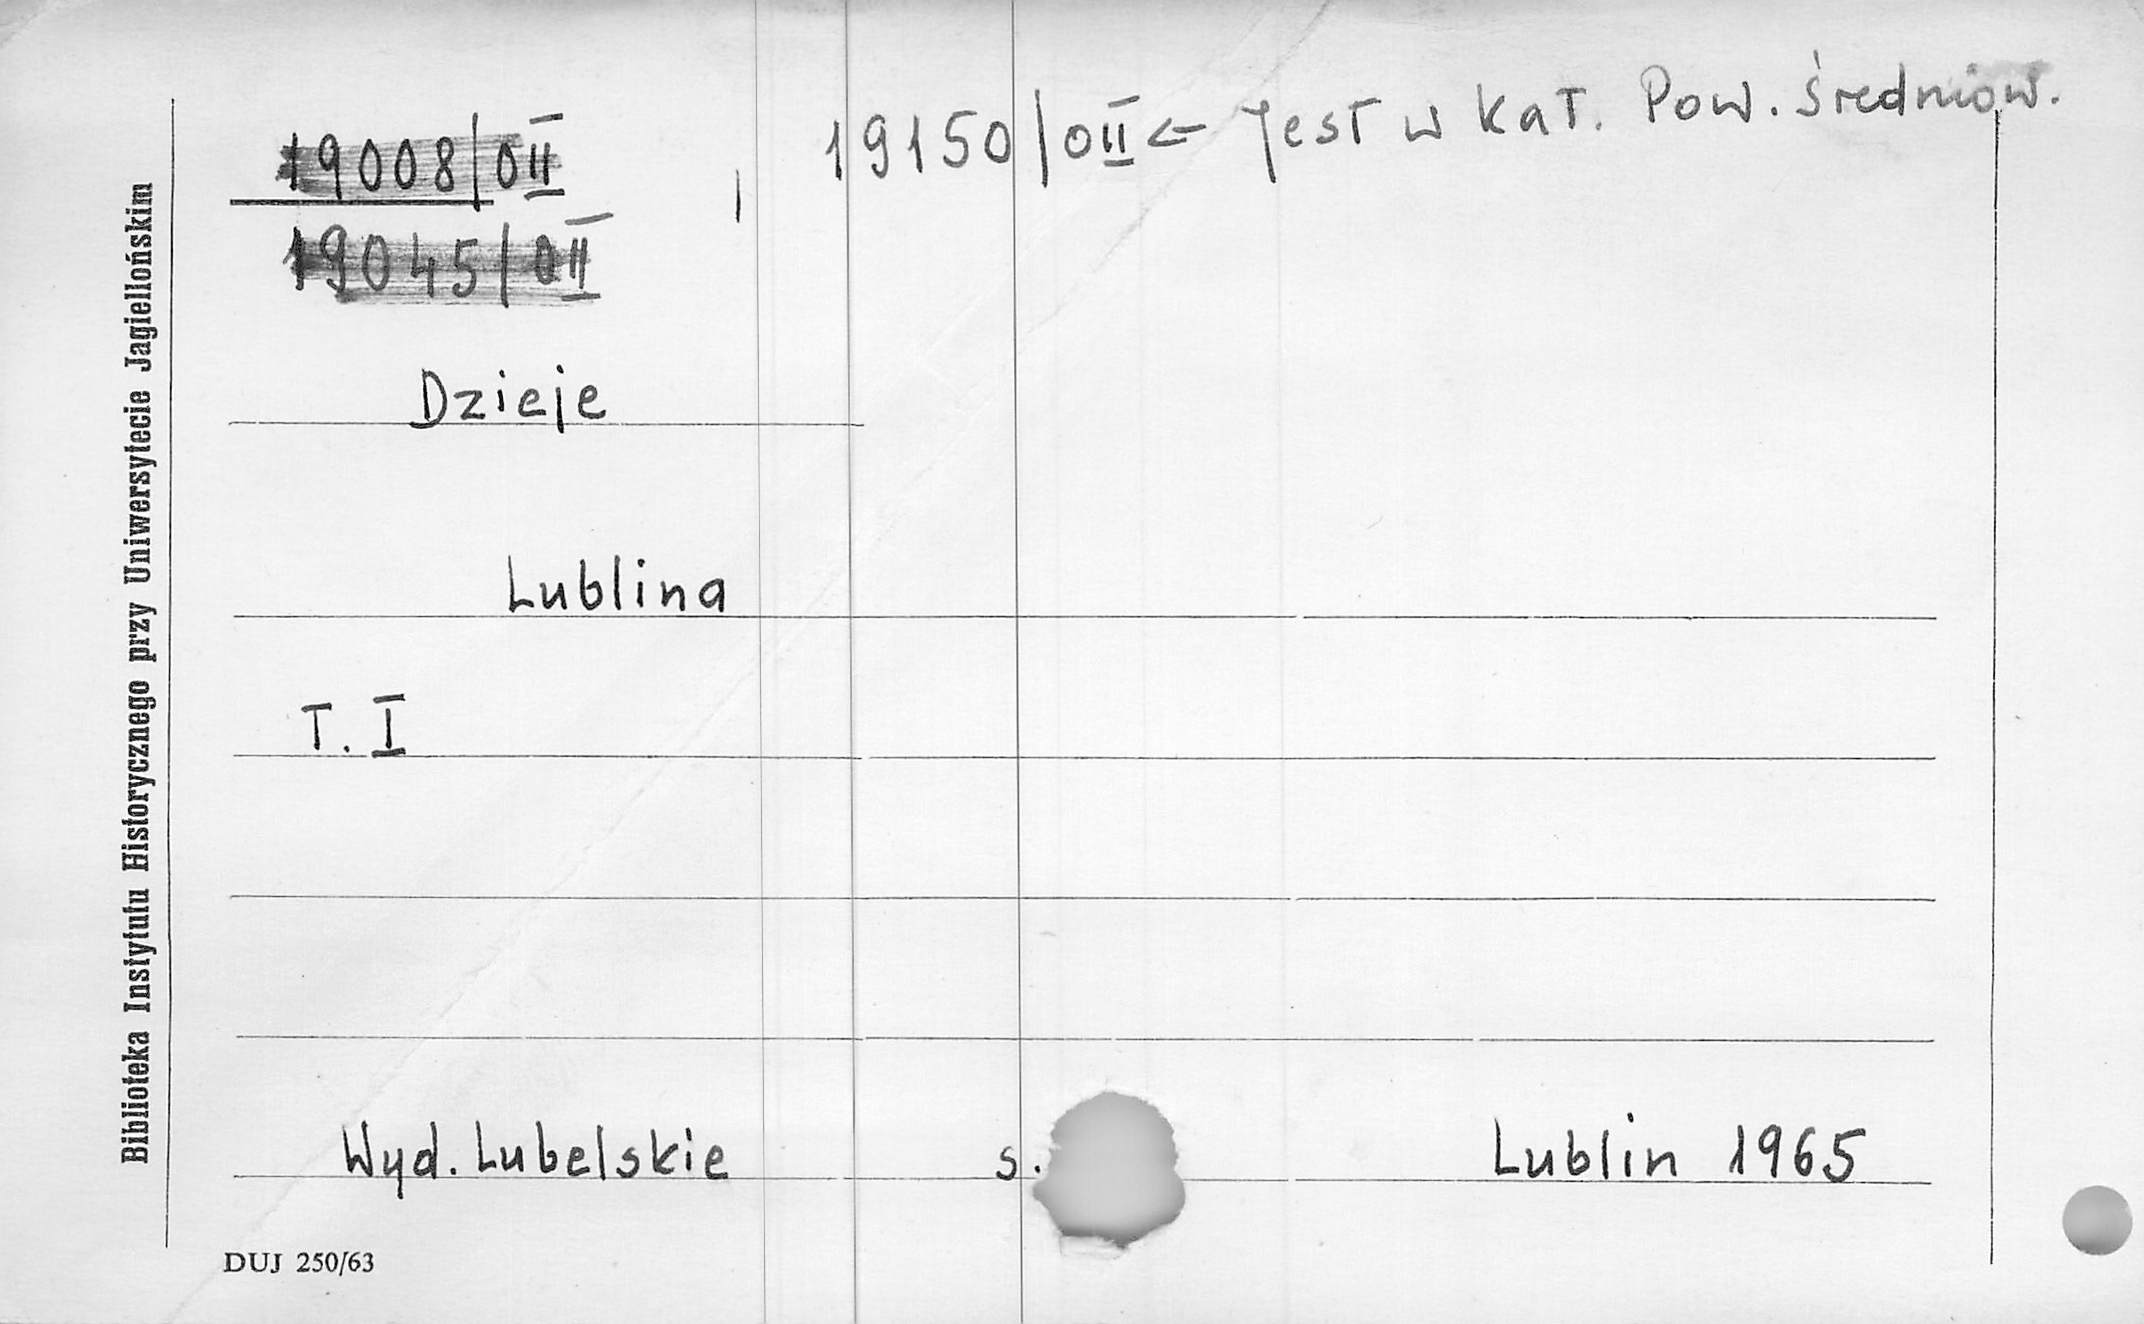 19008/OII
19045/OII
19150/OII ← Jest w kat. Pow. Średniow.
Dzieje
Lublina
T. I
Wyd. Lubelskie s. Lublin 1965
DUJ 250/63
Biblioteka Instytutu Historycznego przy Uniwersytecie Jagiellońskim